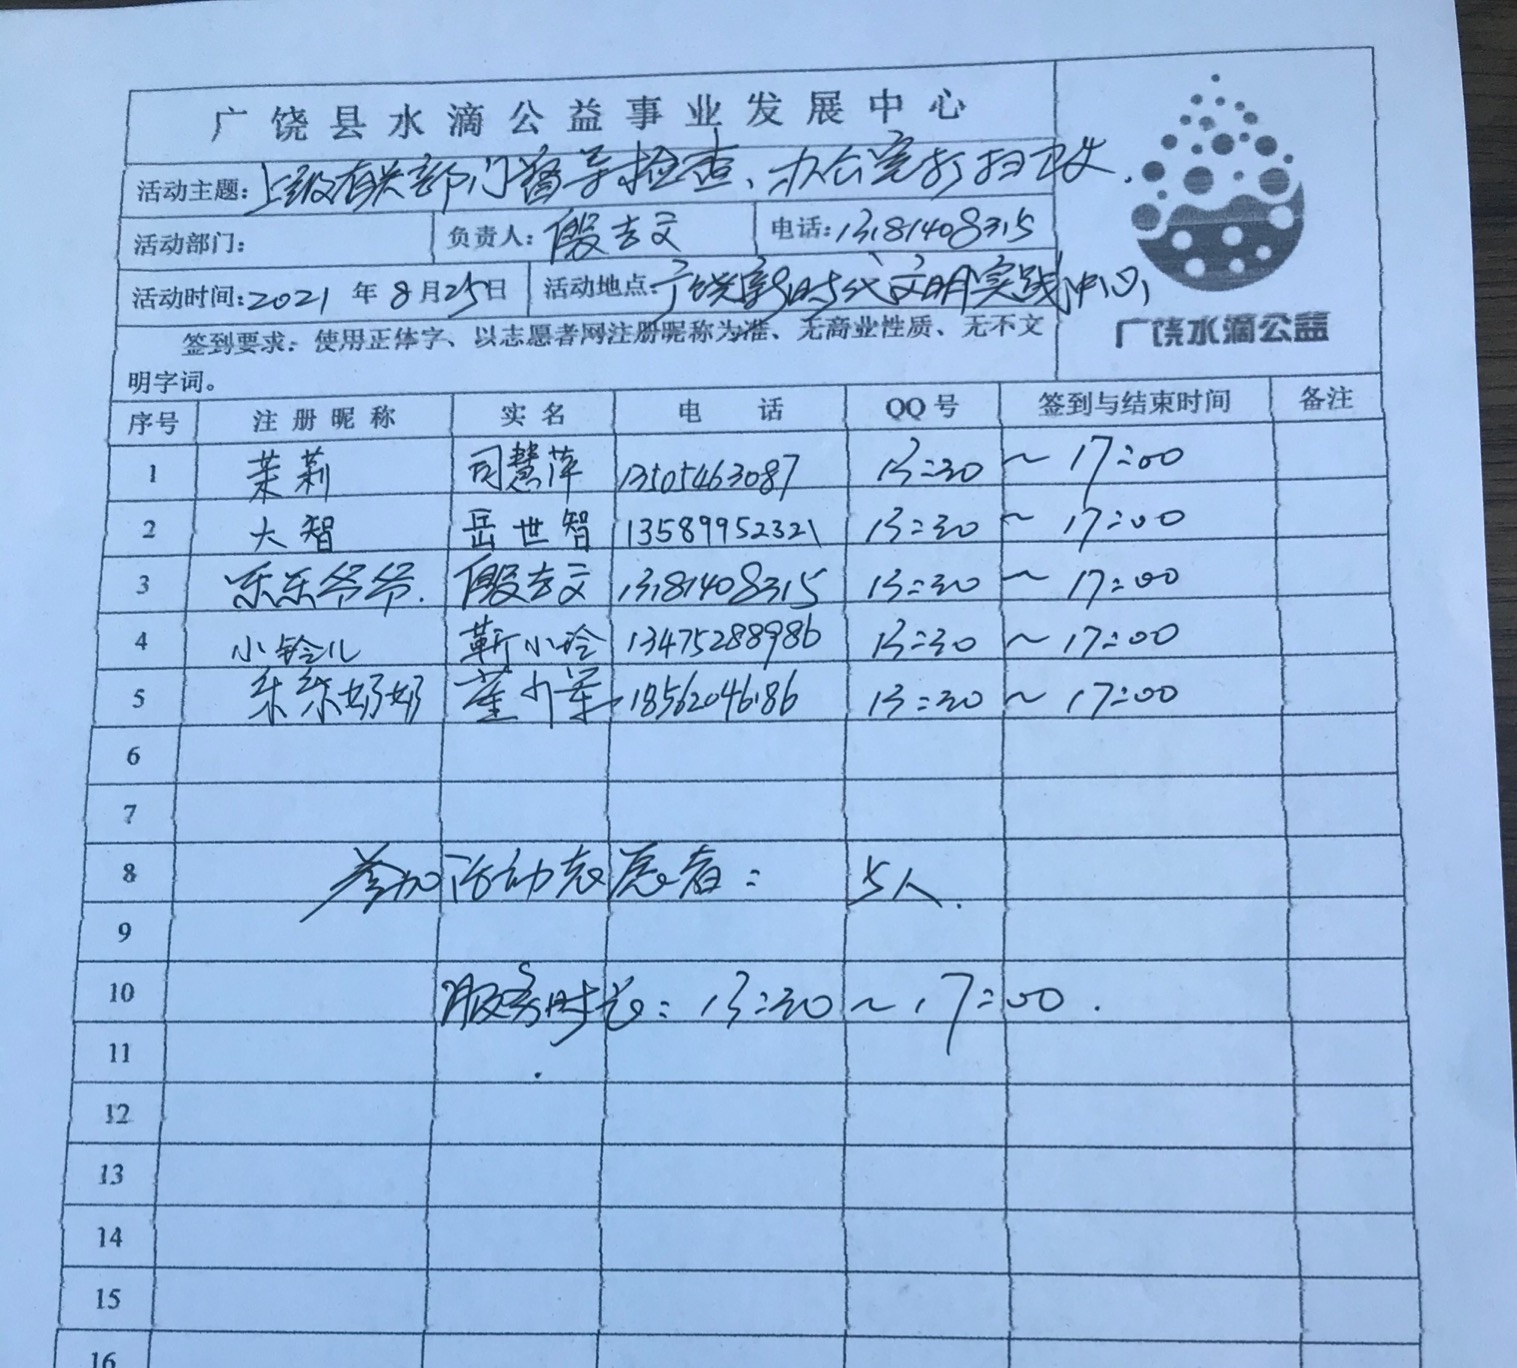 广饶县水滴公益事业发展中心
活动主题：上级有关部门督导检查、办公室打扫卫生.
活动部门： 负责人：殷吉文 电话：13181408315
活动时间：2021年8月25日 活动地点：广饶新时代文明实践中心
广饶水滴公益
签到要求：使用正体字、以志愿者网注册昵称为准、无商业性质、无不文
明字词。
序号 注册昵称 实名 电话 QQ号 签到与结束时间 备注
1 茉莉 司慧萍 13505463087 13:30 ～ 17:00
2 大智 岳世智 13589952321 13:30 ～ 17:00
3 乐乐爷爷. 殷吉文 13181408315 13:30 ～ 17:00
4 小铃儿 靳小玲 13475288986 13:30 ～ 17:00
5 乐乐奶奶 董 18562046186 13:30 ～ 17:00
6
7
8 参加活动志愿者： 5人.
9
10 服务时长：13:30～17:00.
11
12
13
14
15
16